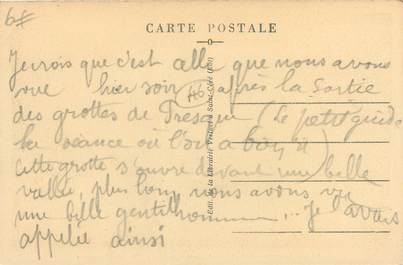 6f
CARTE POSTALE
Je crois que c'est alle que nous avons
vue hier soir après la sortie
46
des grottes de Presque (Le petit guide
la séance où l'on a bien ri)
Cette grotte s'ouvre devant une belle
vallée, plus loin nous avons vu
une belle gentilhommière... Je l'avais
appelée ainsi
Edit. de la Librairie Vertuel à Saint-Céré (Lot)